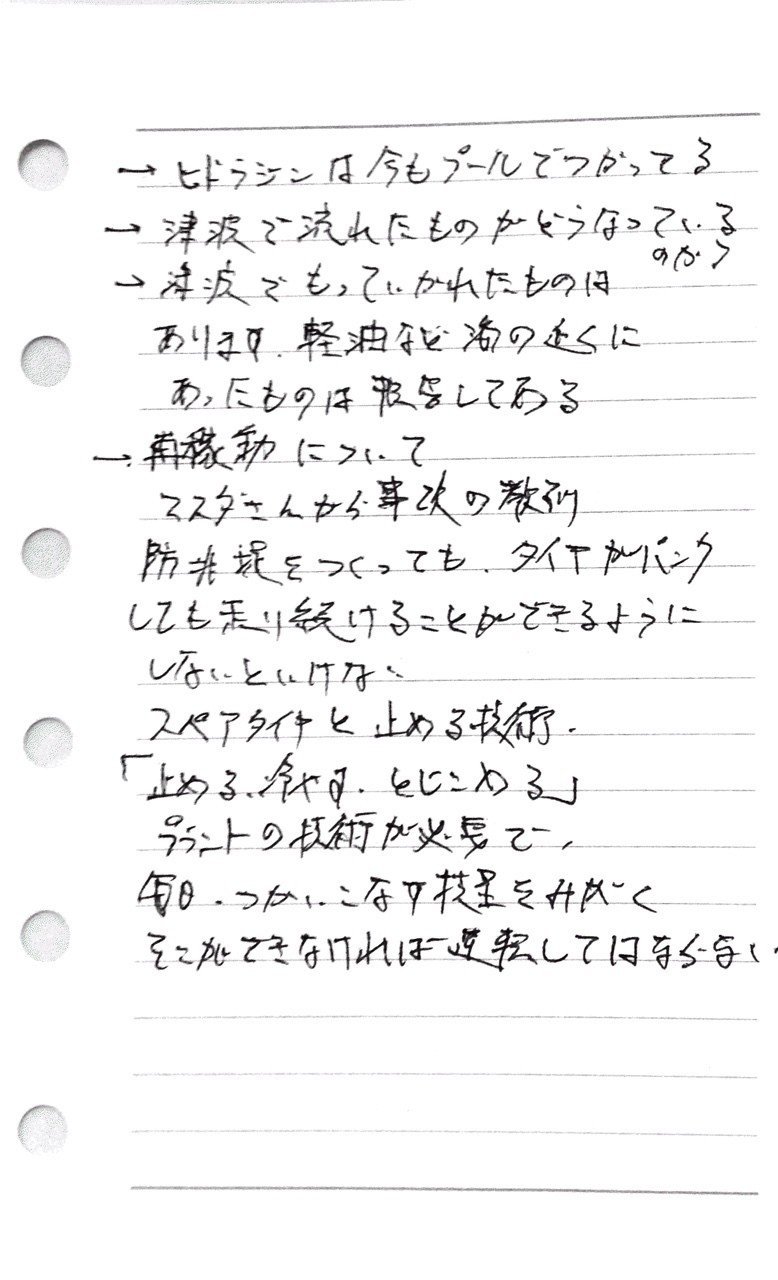 → ヒドラジンは今もプールでつかってる
→ 津波で流れたものがどうなっている
のか?
→ 津波でもっていかれたものは
あります. 軽油など海の近くに
あったものは報告してある
→ 再稼動について
マスダさんから事次の教訓
防止堤をつくっても、タイヤがパンク
しても走り続けることができるように
しないといけない
スペアタイヤと止める技術.
「止める、冷やす. とじこめる」
プラントの技術が必要で、
毎日、つかいこなす技量をみがく
そこができなければ運転してはならない